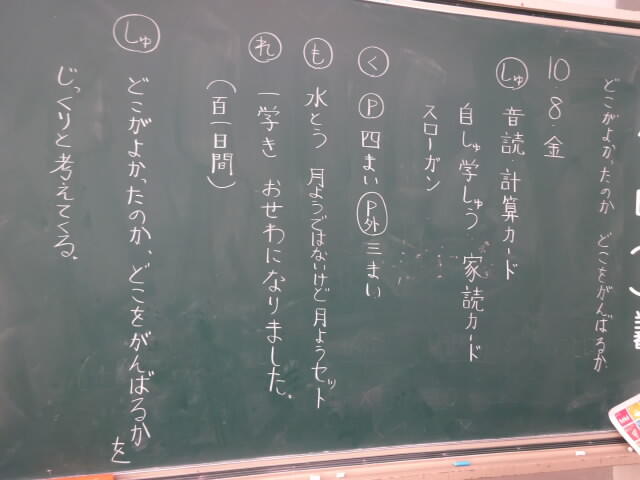 どこがよかったのか どこをがんばるか
10.8.金
しゅ 音読・計算カード
自しゅ学しゅう 家読カード
スローガン
く P 四まい P外 三まい
も 水とう 月ようではないけど月ようセット
れ 一学き おせわになりました。
(百一日間)
しゅ どこがよかったのか、どこをがんばるかを
じっくりと考えてくる。